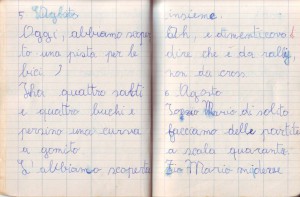 5 Agosto
Oggi, abbiamo scoper
to una pista per le
bici
Iha quattro salti
e quattro buchi e
persino una curva
a gomito
L'abbiamo scoperta
insieme.
Ah, e dimenticavo
dire che è da rally,
non da cross
6 Agosto
Mario di solito
facciamo delle partite
a scala quaranta.
Zio Mario